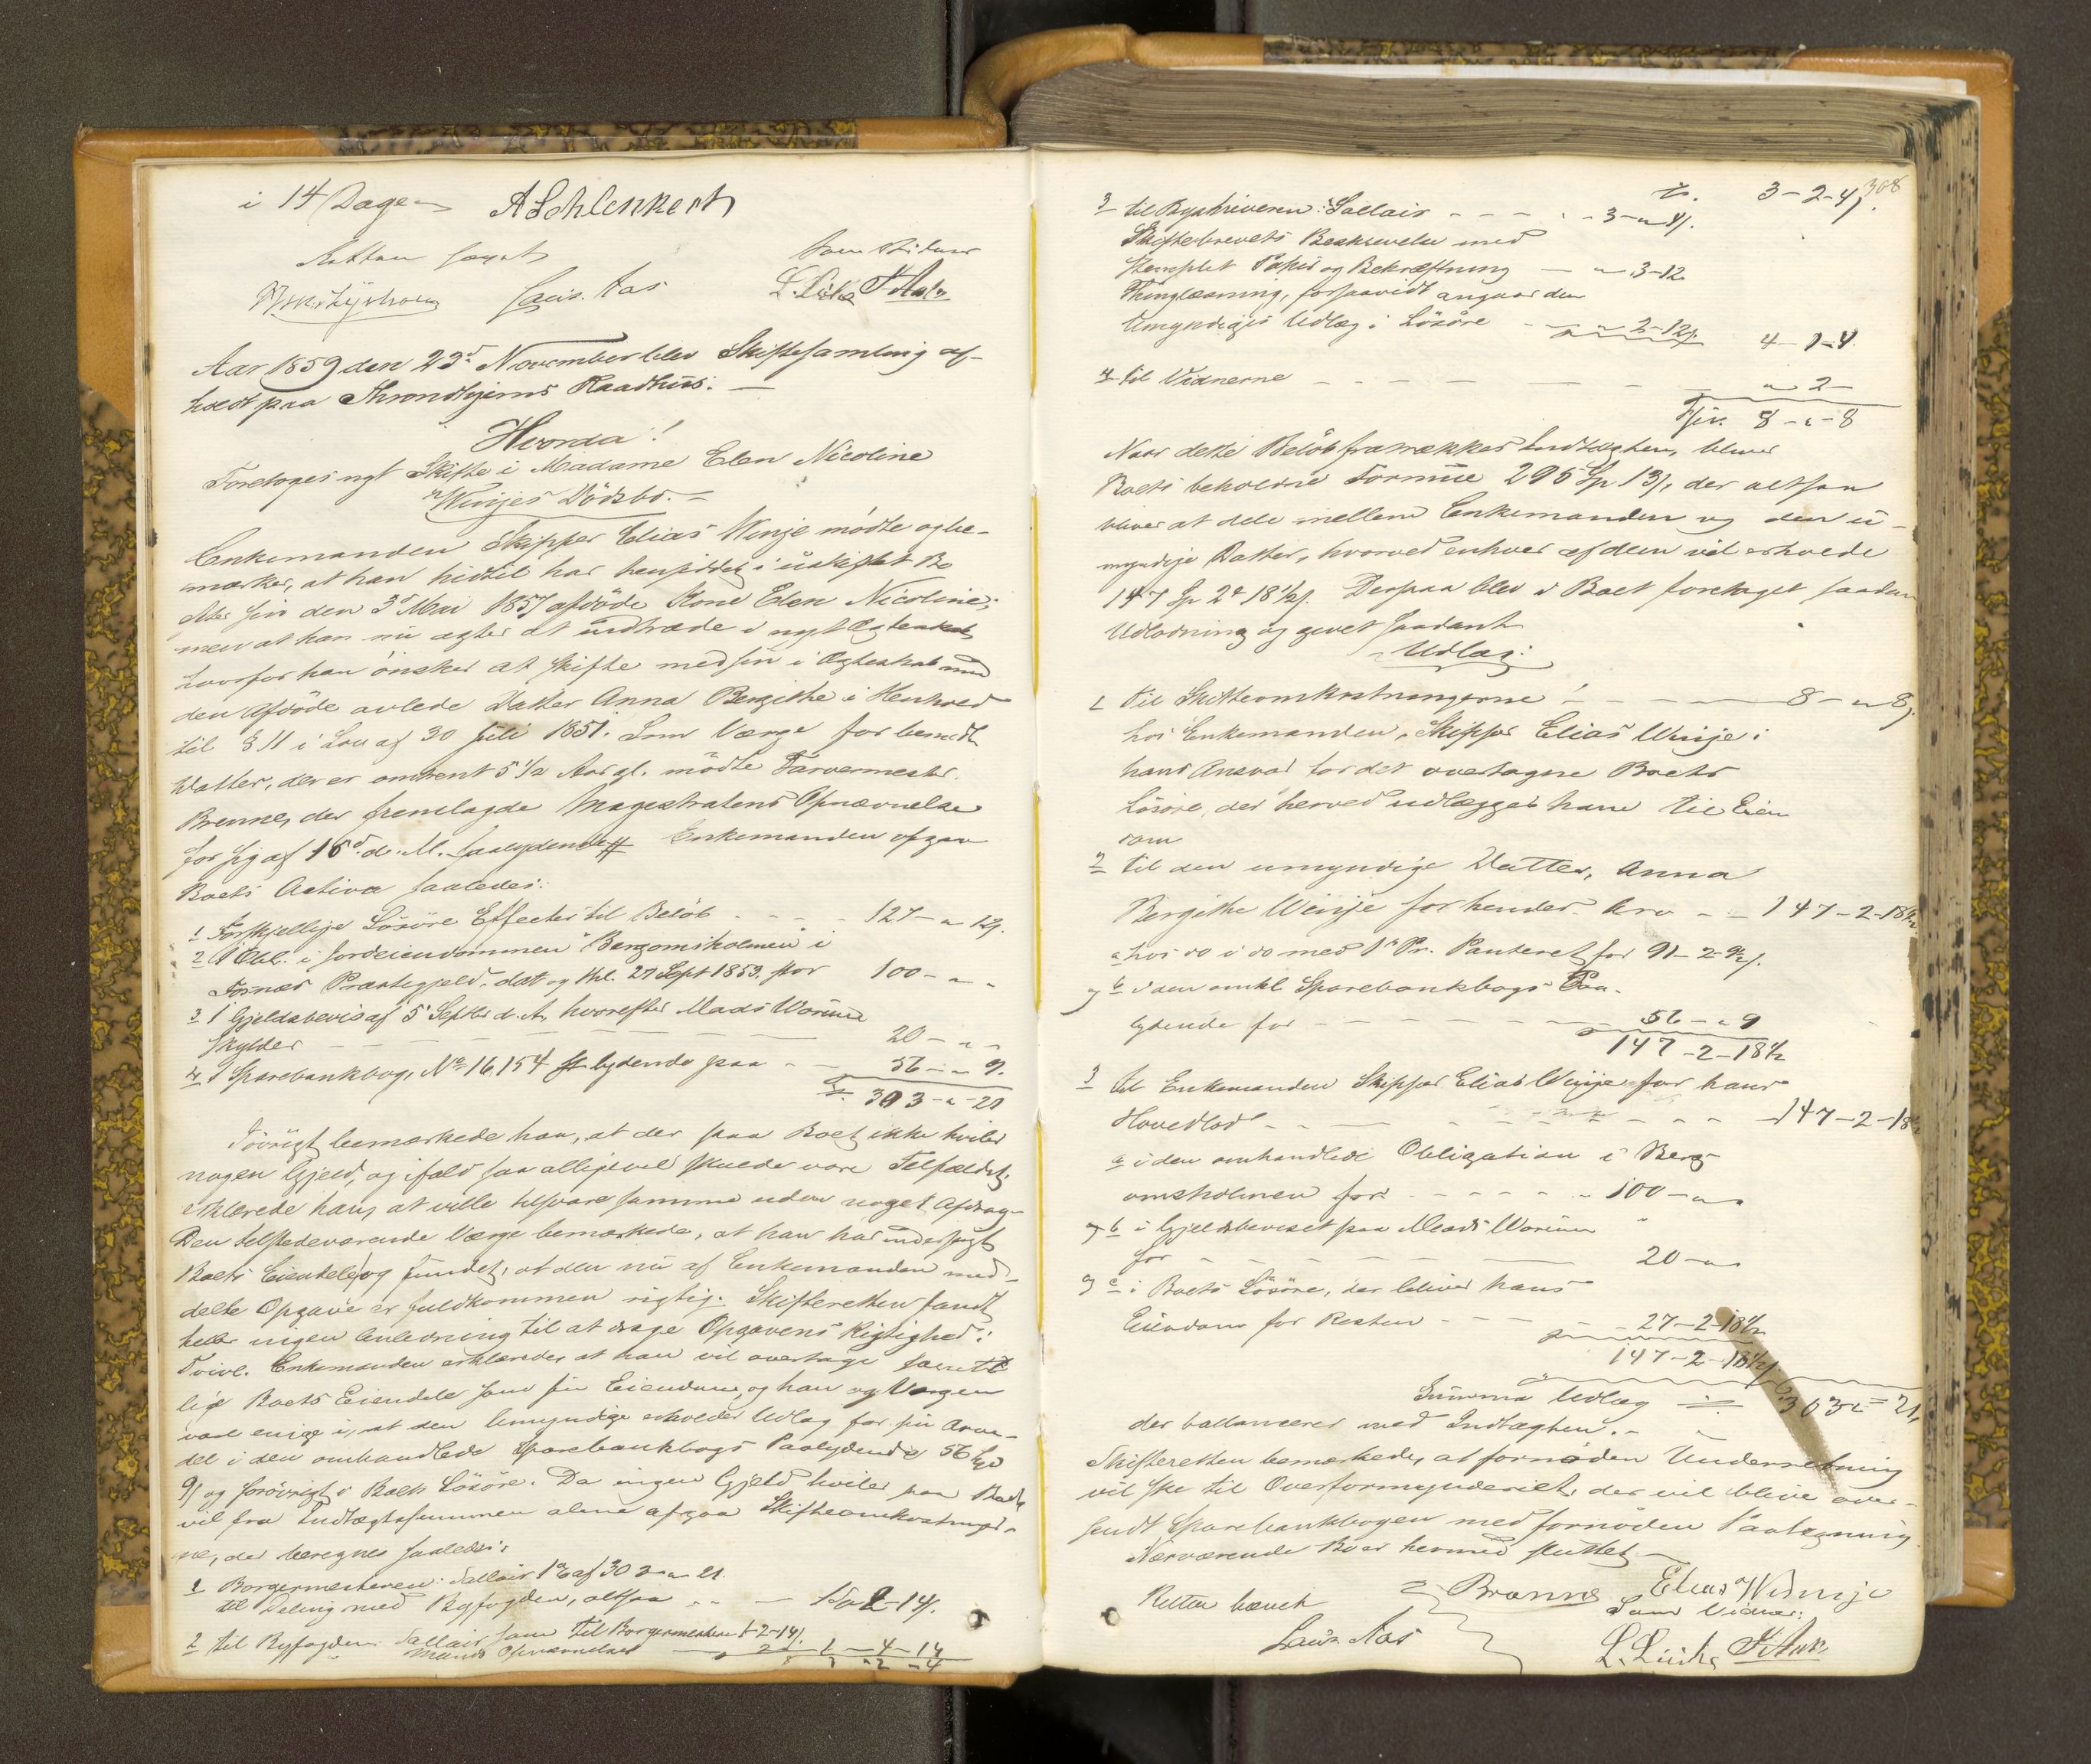 i 14 Dage
ASchlenkert
Retten hævet
Som Vidner
Laur. Aas
L. Lüche
Aar 1859 den 23d November blev Skiftesamling af-
holdt paa Throndhjems Raadhus. —
Hvorda!
Foretoges nyt Skifte i Madame Elen Nicoline
Winjes Dödsbo. —
Enkemanden Skipper Elias Winje mödte og be-
mærker, at han hidtil har hensiddet i uskiftet Bo
efter sin den 3d Mai 1857 afdöde Kone Elen Nicoline;
men at han nu agter at indtræde i nyt Ægteskab,
hvorfor han önsker at skifte med sin i Ægteskab med
den Afdöde avlede Datter Anna Bergithe i Henhold
til § 11 i Lov af 30 Juli 1851. Som Værge for bemeldte
Datter, der er omtrent 5 1/2 Aar gl. mödte Farvermester
Brenne, der fremlagde Magistratens Opnævnelse
for sig af 16d. d. M. saalydende # Enkemanden opgav
Boets Activa saaledes:
1 Forskjellige Lösöre Effecter til Belöb - - - - 127 - " 12.
2 1 Obl. i Jordeiendommen "Bergomsholmen" i
Fosnæs Præstegjeld, dat. og thl. 27 Sept 1859, stor 100 - " "
3 1 Gjeldsbevis af 5 Septbr d. A. hvorefter Mads Worum
skylder - - - 20 - " "
4 1 Sparebankbog, No 16,154 lydende paa - - 56 - " 9.
303 - " - 21
Iövrigt bemærkede han, at der paa Boet ikke hviler
nogen Gjeld, og ifald saa alligevel skulde være Tilfældet,
erklærede han, at ville tilsvare samme uden noget Afdrag.
Den tilstedeværende Værge bemærkede, at han har undersögt
Boets Eiendele og fundet, at den nu af Enkemanden med-
delte Opgave er fuldkommen rigtig. Skifteretten fandt
heller ingen Anledning til at drage Opgavens Rigtighed i
Tvivl. Enkemanden erklærede, at han vil overtage samt-
lige Boets Eiendele som sin Eiendom, og han og Værgen
vare enige i, at den Umyndige erholder Udlæg for sin Arve-
del i den omhandlede Sparebankbogs Paalydende 56 Spd
9 s og forövrigt i Boets Lösöre. Da ingen Gjeld hviler paa Boet,
vil fra Indtægtssummen alene afgaa Skifteomkostninger-
ne, der beregnes saaledes:
1 Borgermesteren: Sallair 1% af 303 - " 21.
til Deling med Byfogden, altsaa - - - 1 2 - 14.
2 til Byfogden Sallair som til Borgermesteren 1-2-14.
Mands Opnævnelse
308
3-2-4.
3 til Byskriveren: Sallair - - - - 3 - " 4.
Skiftebrevets Beskrivelse med
stemplet Papir og Bekræftning - " 3-12
Thinglæsning, forsaavidt angaar den
Umyndiges Udlæg i Lösöre - - " 2-12.
4-1-4
4 til Vidnerne - - - - " 2 -
Tilsn. 8 - " - 8
Naar dette Belöb fratrækkes Indtægten, bliver
Boets beholdne Formue 295 Sp 13 s, der altsaa
bliver at dele mellem Enkemanden og den u-
myndige Datter, hvorved enhver af dem vil erholde
147 Sp 2 18 1/2 s. Derpaa blev i Boet foretaget saadan
Udlodning og givet saadant
Udlæg:
1 til Skifteomkostningerne - - - 8 - " 8.
hos Enkemanden, Skipper Elias Winje i
hans Ansvar for det overtagne Boets
Lösöre, der herved udlægges ham til Eien
dom
2 til den umyndige Datter, Anna
Bergithe Winje for hendes Arv - - 147-2-18 1/2
a hos do i do med 1ste Pr. Panteret for 91-2-9 1/2.
og b i den omhl. Sparebankbogs Paa-
lydende for - - - - 56 - " 9
147-2-18 1/2
3 til Enkemanden Skipper Elias Winje for hans
Hovedlod - - - - 147-2-18 1/2
a i den omhandlede Obligation i Berg-
omsholmen for - - - - 100 - "
og b i Gjeldsbeviset paa Mads Worum
for - - - - 20 - "
og c i Boets Lösöre, der bliver hans
Eiendom for Resten - - - 27-2-18 1/2
147-2-18 1/2.
Summa Udlæg 303 " 21,
der ballancerer med Indtægten. -
Skifteretten bemærkede, at fornöden Underretning
vil ske til Overformynderiet, der vil blive over-
sendt Sparebankbogen med fornöden Paategning.
Nærværende Bo er hermed sluttet. -
Retten hævet
Brenne
Elias Winje
Som Vidner:
Laur. Aas
L. Lüche